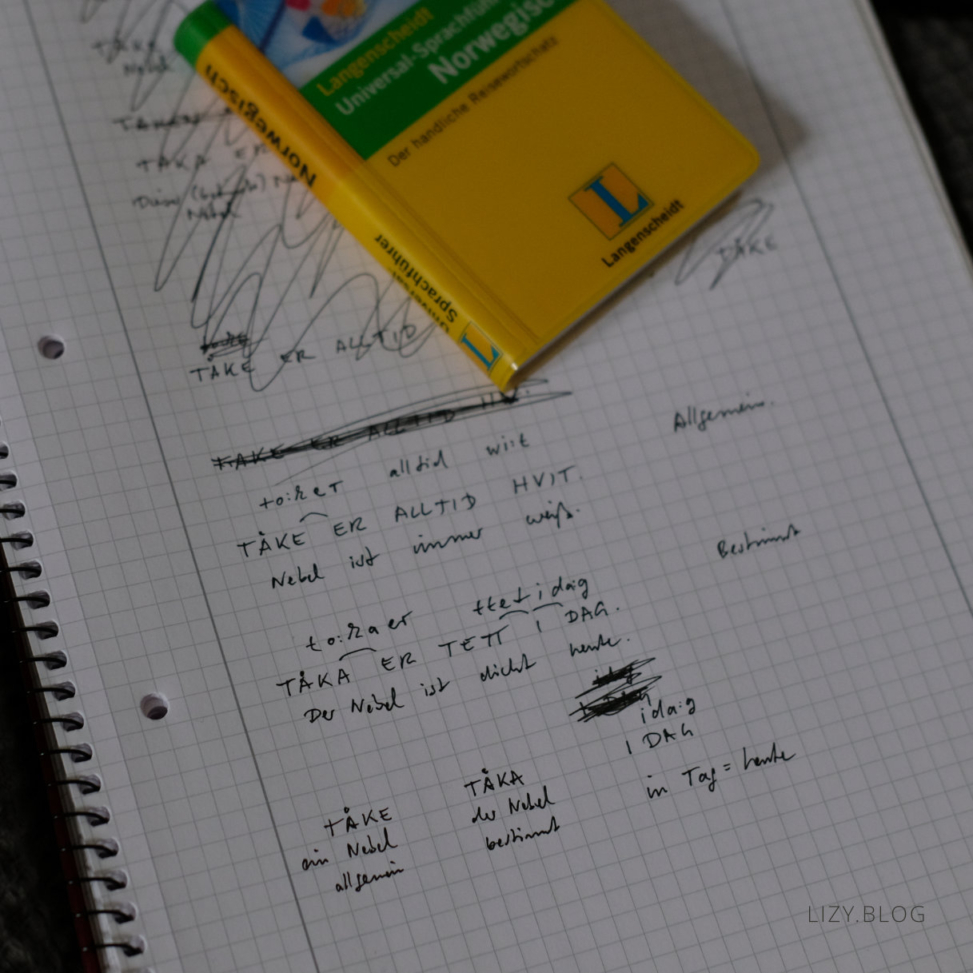 Langenscheidt
Universal-Sprachführer
Norwegisch
Der handliche Reisewortschatz
L
Langenscheidt
Norwegisch
Universal
Sprachführer
L
TÅKA
TÅKE
TÅKE ER ALLTID
TÅKE ER ALLTID HV.
alltid
Allgemein.
TÅKE ER ALLTID HVIT.
Nebel ist immer weiß.
Bestimmt
i da:g
TÅKA ER TETT I DAG.
Der Nebel ist dicht heute.
i da:g
I DAG
in Tag = heute
TÅKE
ein Nebel
allgemein
TÅKA
der Nebel
bestimmt
LIZY.BLOG